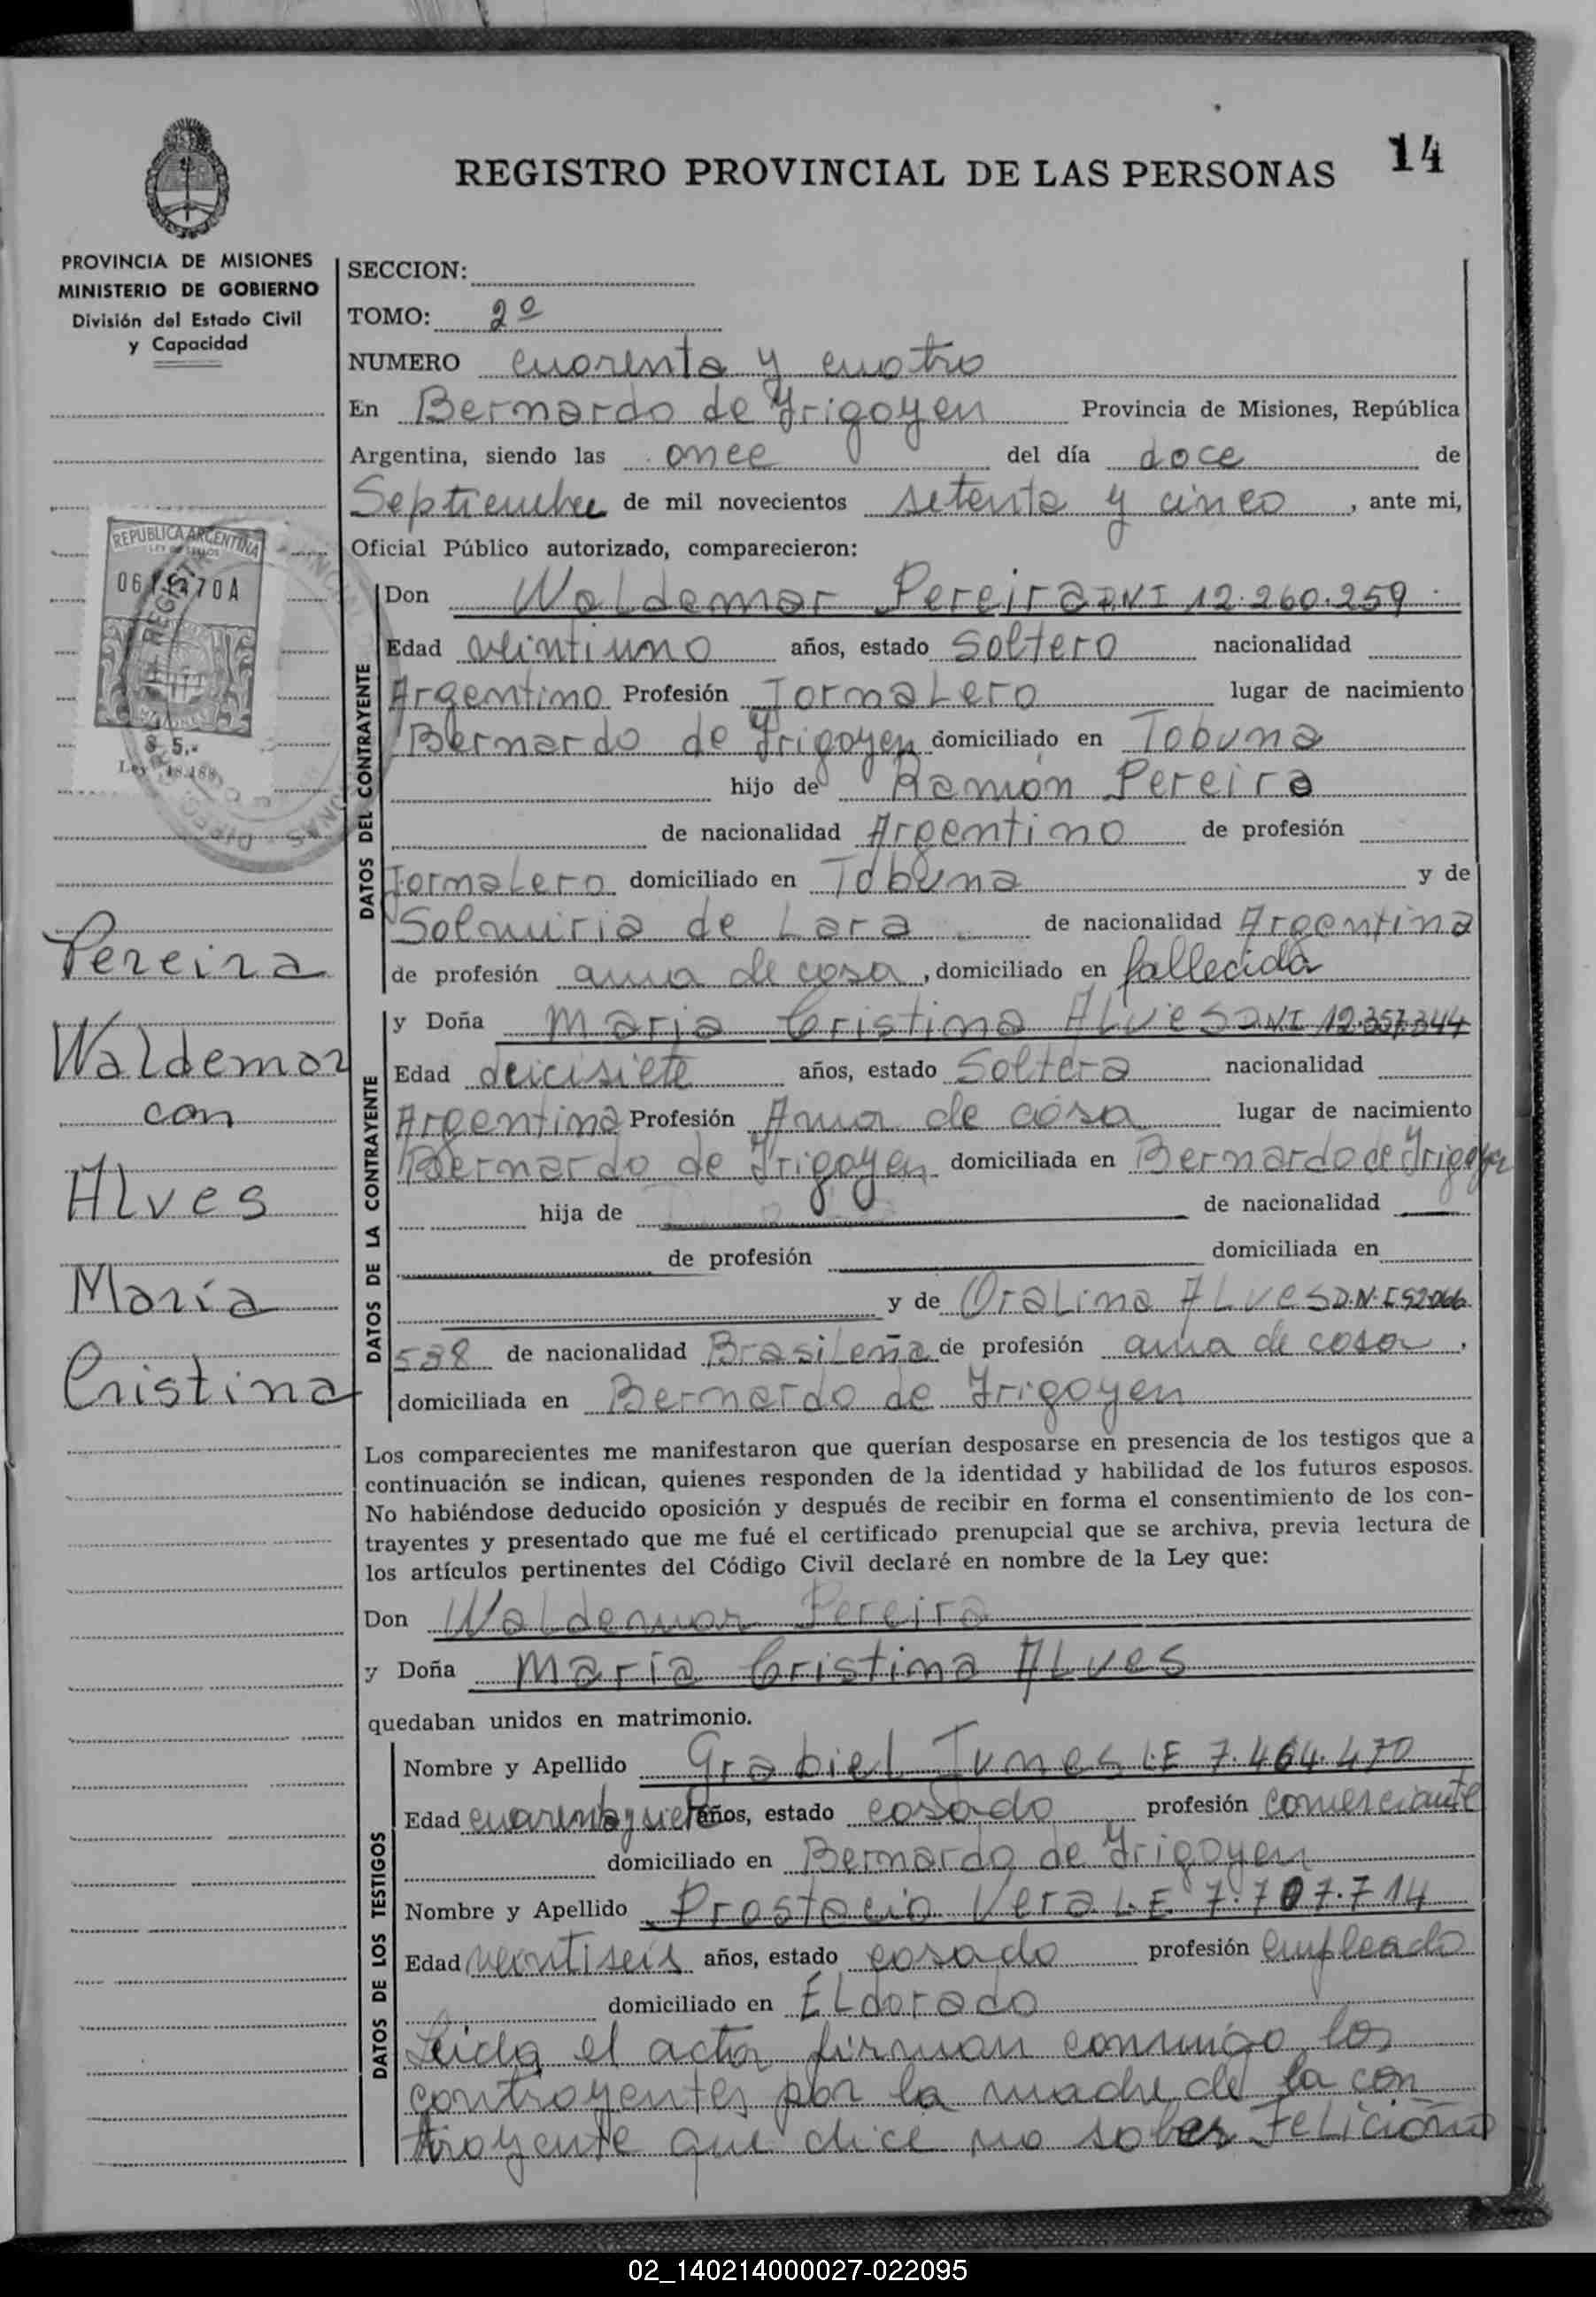 14
REGISTRO PROVINCIAL DE LAS PERSONAS
PROVINCIA DE MISIONES
MINISTERIO DE GOBIERNO
División del Estado Civil
y Capacidad
SECCION:
TOMO: 2º
NUMERO cuarenta y cuatro
En Bernardo de Irigoyen Provincia de Misiones, República
Argentina, siendo las once del día doce de
Septiembre de mil novecientos setenta y cinco, ante mi,
Oficial Público autorizado, comparecieron:
REPUBLICA ARGENTINA
$ 5.-
Ley 18.188
Pereira
Waldemar
con
Alves
María
Cristina
DATOS DEL CONTRAYENTE
Don Waldemar Pereira DNI 12.260.259
Edad veintiuno años, estado Soltero nacionalidad
Argentino Profesión Jornalero lugar de nacimiento
Bernardo de Irigoyen domiciliado en Tobuna
hijo de Ramón Pereira
de nacionalidad Argentino de profesión
Jornalero domiciliado en Tobuna y de
de Lara de nacionalidad Argentina
de profesión ama de casa, domiciliado en fallecida
DATOS DE LA CONTRAYENTE
y Doña Maria Cristina Alves DNI 12.357.344
Edad deicisiete años, estado Soltera nacionalidad
Argentina Profesión Ama de casa lugar de nacimiento
Bernardo de Irigoyen domiciliada en Bernardo de Irigoyen
hija de de nacionalidad
de profesión domiciliada en
y de Oralina Alves D.N.I 92066
538 de nacionalidad Brasileña de profesión ama de casa,
domiciliada en Bernardo de Irigoyen
Los comparecientes me manifestaron que querían desposarse en presencia de los testigos que a
continuación se indican, quienes responden de la identidad y habilidad de los futuros esposos.
No habiéndose deducido oposición y después de recibir en forma el consentimiento de los con-
trayentes y presentado que me fué el certificado prenupcial que se archiva, previa lectura de
los artículos pertinentes del Código Civil declaré en nombre de la Ley que:
Don Waldemar Pereira
y Doña María Cristina Alves
quedaban unidos en matrimonio.
DATOS DE LOS TESTIGOS
Nombre y Apellido Grabiel Junes L.E 7.464.470
Edad cuarenta y siete años, estado casado profesión comerciante
domiciliado en Bernardo de Irigoyen
Nombre y Apellido Prostacio Vera L.E 7.707.714
Edad veintiseis años, estado casado profesión empleado
domiciliado en Eldorado
Leida el acta firman conmigo los
contrayentes por la madre de la con
trayente que dice no saber Feliciano
02_140214000027-022095